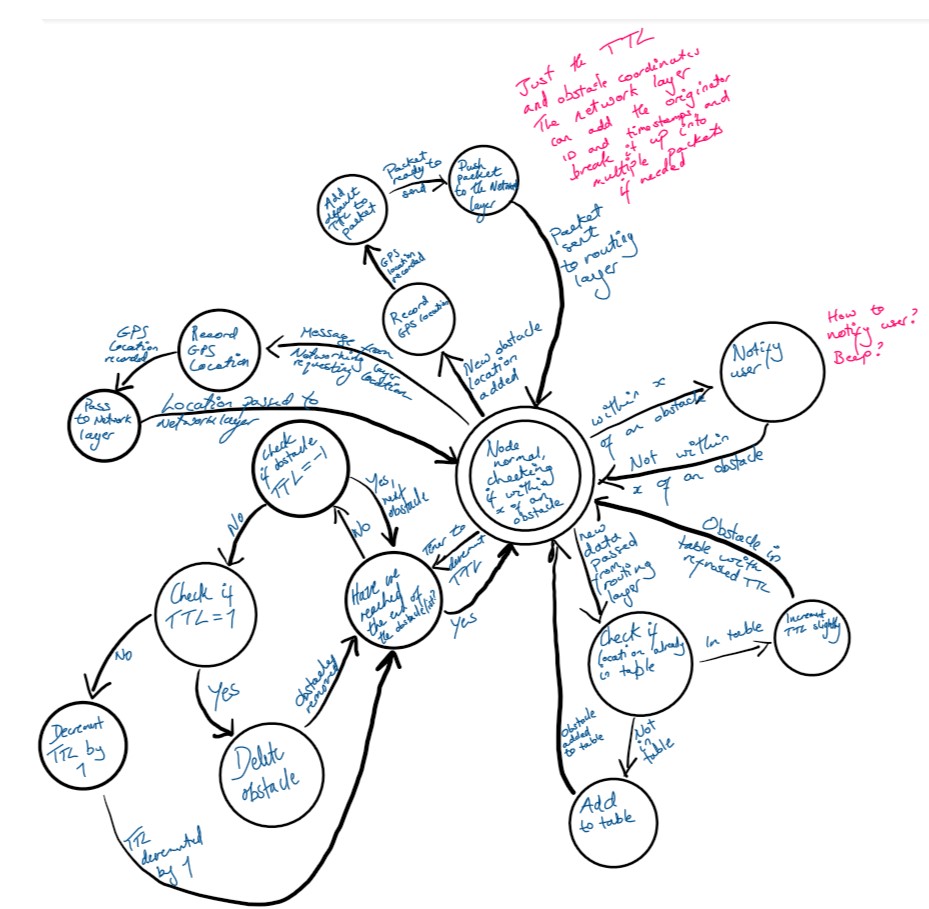 Just the TTL
and obstacle coordinates
The network layer
can add the originator
ID and timestamps and
break it up into
multiple packets
if needed
Packet
ready to
send
Push
packet
to the Network
layer
Add
default
TTL to
packet
GPS
location
recorded
Record
GPS location
Packet
sent
to routing
layer
New obstacle
location
added
GPS
Location
recorded
Record
GPS
Location
Message from
Networking layer
requesting location
Pass
to Network
layer
Location passed to
Network layer
How to
notify user?
Beep?
Notify
user
within x
of an obstacle
Not within
x of an obstacle
Node
normal,
checking
if within
x of an
obstacle
Check
if obstacle
TTL = -1
Yes,
next
obstacle
No
No
Timer to
decrement
TTL
Have we
reached
the end of
the obstacle list?
Yes
Check if
TTL = 1
No
Yes
Obstacle
removed
Decrement
TTL by
1
Delete
obstacle
TTL
decremented
by 1
New
data
passed
from
routing
layer
Obstacle in
table with
increased TTL
Check if
location already
in table
In table
Increment
TTL slightly
Obstacle
added
to table
Not
in
table
Add
to table